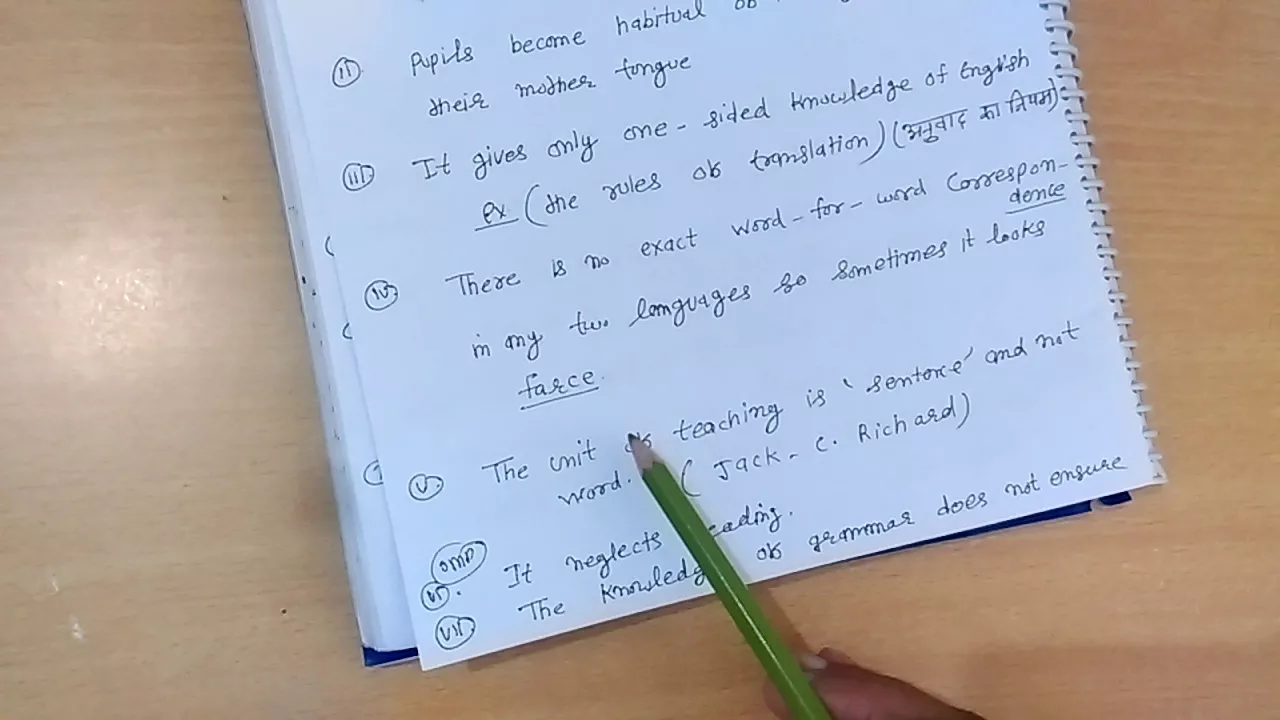 (ii) Pupils become habitual of
their mother tongue
(iii) It gives only one-sided knowledge of English
ex (the rules of translation) (अनुवाद का नियम)
(iv) There is no exact word-for-word Correspon-
dence
in any two languages so sometimes it looks
farce.
(v) The unit of teaching is 'sentence' and not
word. (Jack-C. Richard)
(imp)
(vi). It neglects reading.
(vii) The knowledge of grammar does not ensure